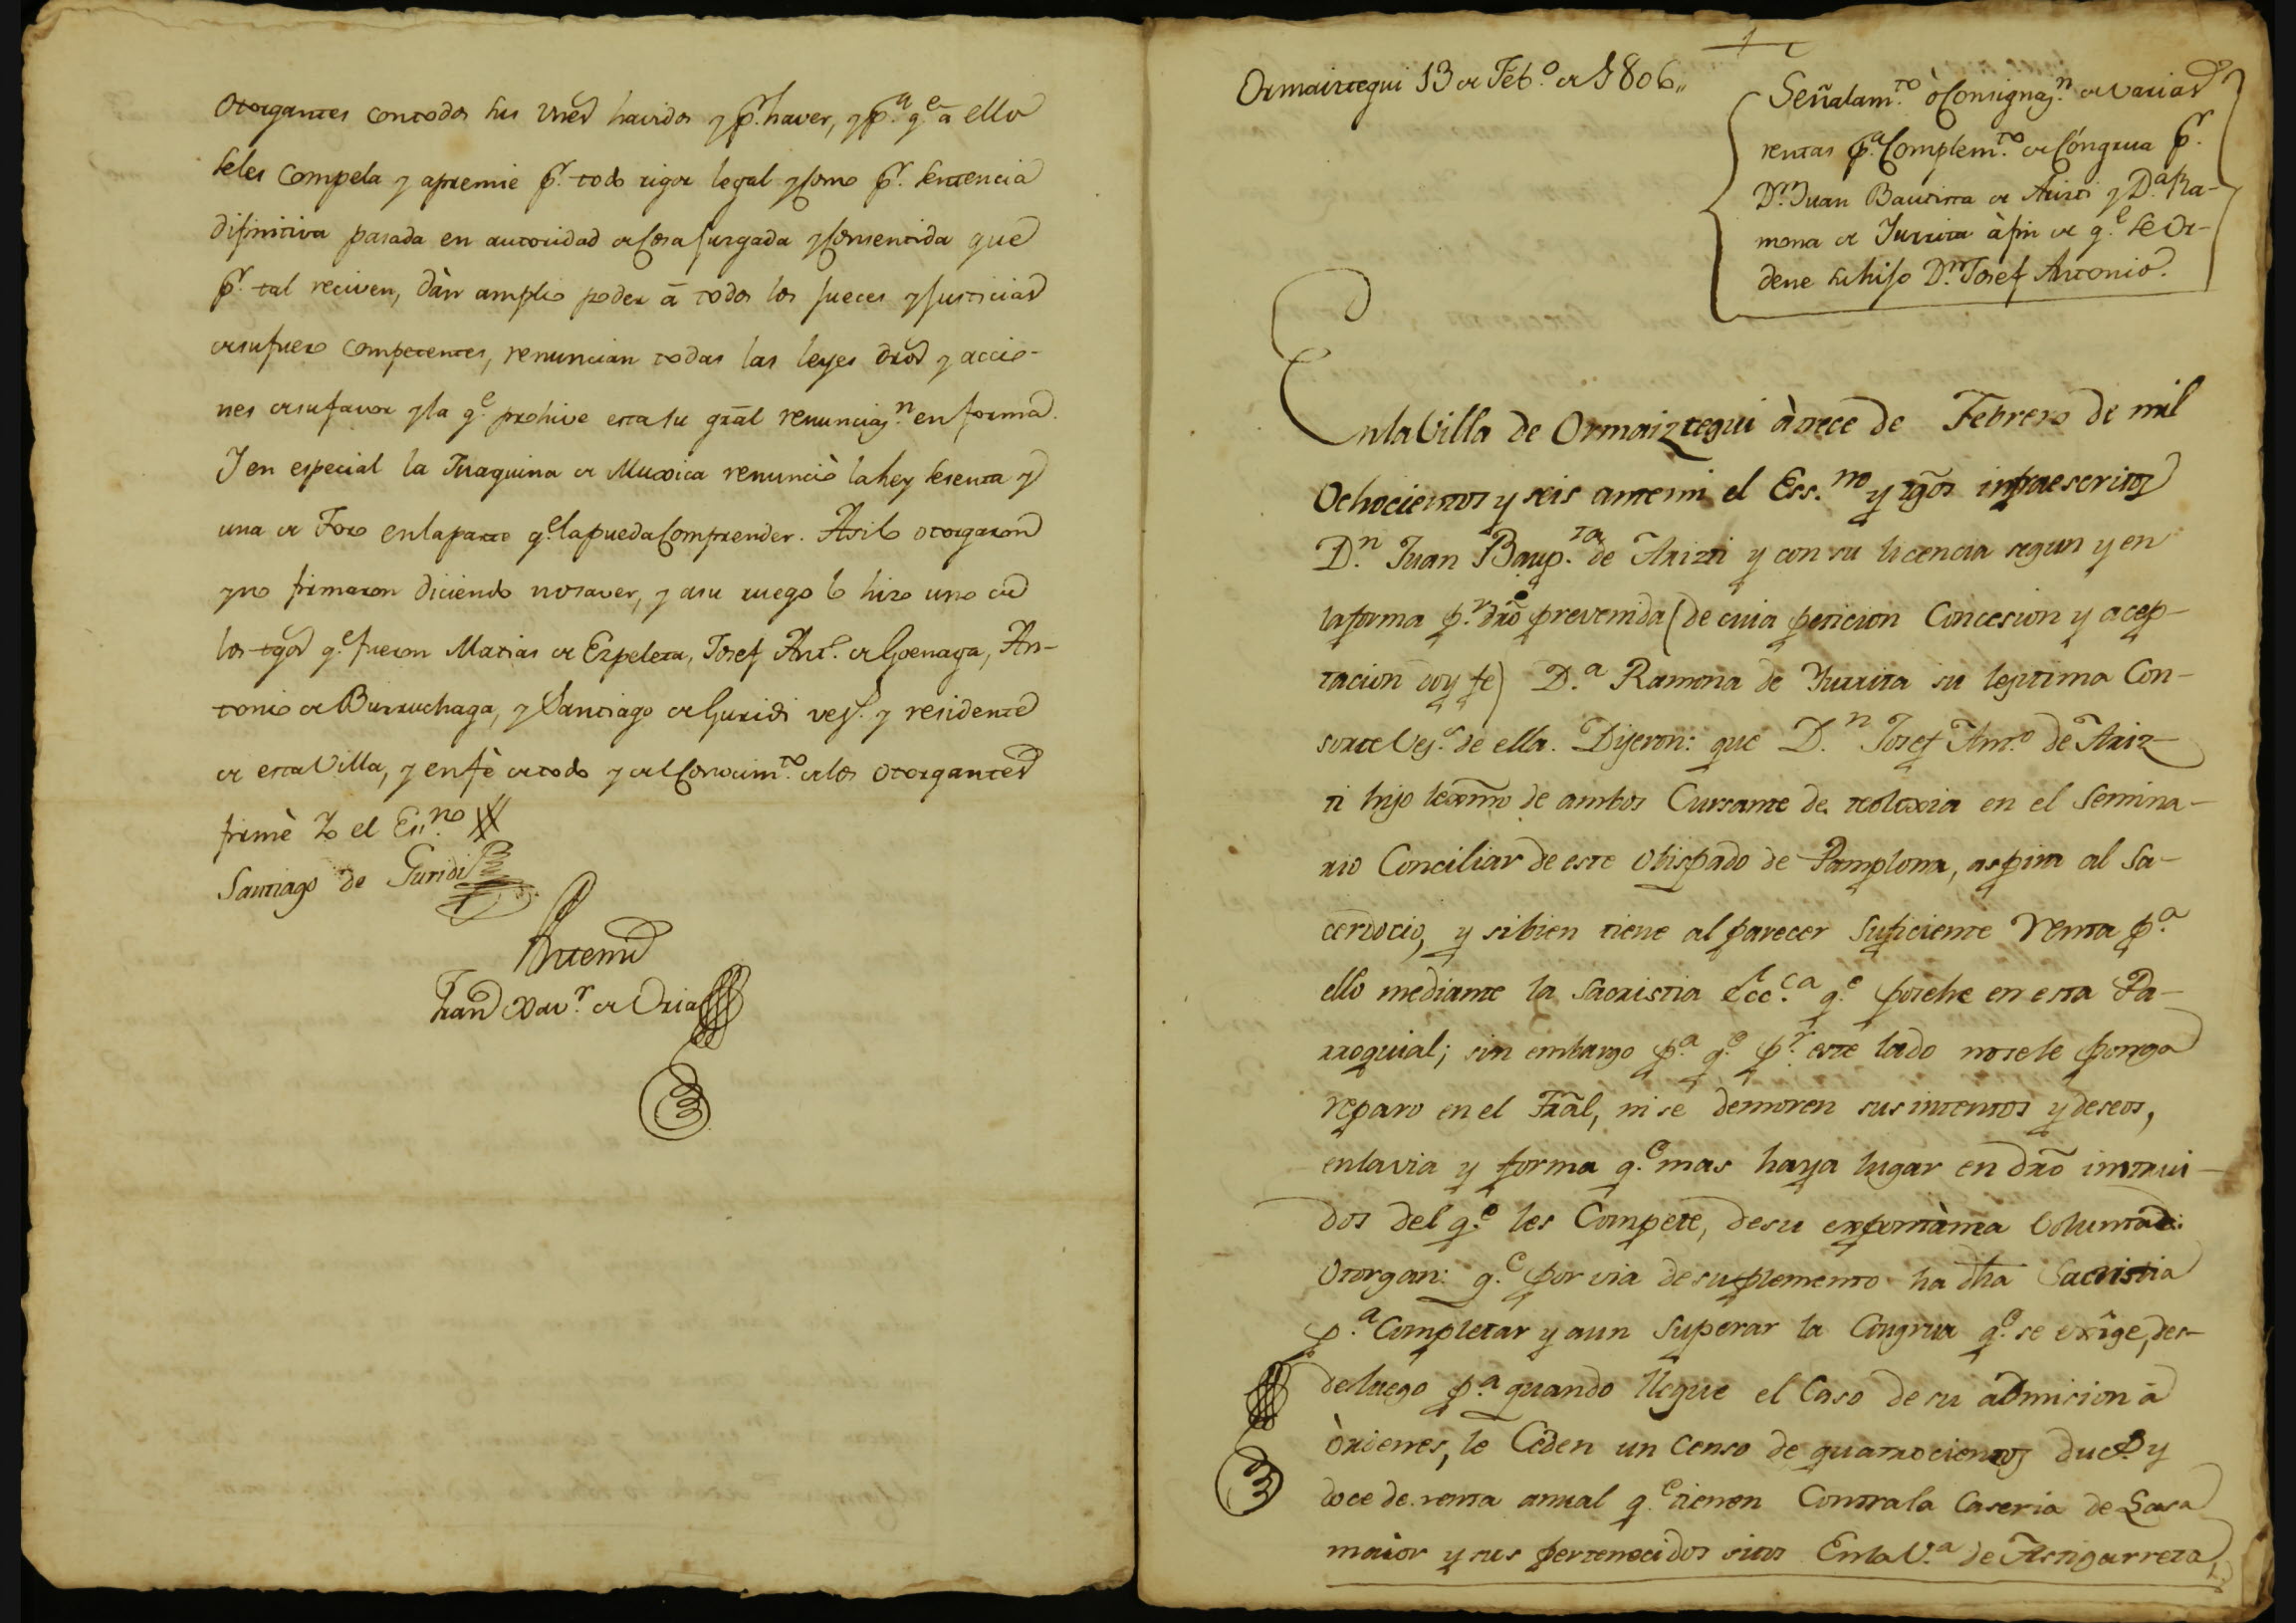 otorgantes con todos sus vnes havidos y p.r haver, y p.a q.e â ello
seles compela y apremie p.r todo rigor legal y como p.r sentencia
difinitiva pasada en autoridad de cosa juzgada y consentida que
p.r tal reciven, dàn amplio poder â todos los jueces y justicias
de su fuero competentes, renuncian todas las leyes dros y accio-
nes de su favor y la q.e prohive esta su gral renunciaz.n en forma.
Y en especial la Juaquina de Muxica renunciò la ley sesenta y
una de Toro en la parte q.e la pueda comprender. Asi lo otorgaron
y no firmaron diciendo no saver, y a su ruego lo hizo uno de
los tgos q.e fueron Matias de Ezpeleta, Josef Ant.o de Goenaga, An-
tonio de Burruchaga, y Santiago de Guridi vez.s y residente
de esta Villa, y en fè de todo y del conocim.to de los otorgantes
firmè Yo el Es.no
Santiago de Guridi
Antemi
Fran.co Xav.r de Oria
Ormaiztegui 13 de Feb.o de 1806,,
Señalam.to ò Consignaz.n de varias
rentas p.a Complem.to de Cóngrua p.r
D.n Juan Bautista de Arizti y D.a Ra-
mona de Iurrita à fin de q.e se Or-
dene su hijo D.n Josef Antonio.
En la Villa de Ormaiztegui à trece de Febrero de mil
Ochocientos y seis ante mi el Ess.no y tgos infraescritos
D.n Juan Baup.ta de Arizti y con su licencia segun y en
la forma p.r dro prevenida (de cuia peticion Concesion y acep-
tacion doy fe) D.a Ramona de Yurrita su lejitima Con-
sorte Vez.s de ella. Dijeron: que D.n Josef Ant.o de Ariz-
ti hijo lexmo de ambos Cursante de teoloxia en el Semina-
rio Conciliar de este Obispado de Pamplona, aspira al Sa-
cerdocio, y si bien tiene al parecer suficiente renta p.a
ello mediante la Sacristia Ecc.ca q.e posehe en esta Pa-
rroquial; sin embargo p.a q.e p.r este lado no se le ponga
reparo en el Tral, ni se demoren sus intentos y deseos,
en la via y forma q.e mas haya lugar en dro instrui-
dos del q.e les Compete, de su expontànea Voluntad:
Otorgan: q.e por via de suplemento ha dha Sacristia
p.a Completar y aun Superar la Congrua q.e se exîge, des-
de luego p.a quando llegue el Caso de su admision â
òrdenes, le Ceden un Censo de quatrocientos duc.s y
doce de renta anual q.e tienen Contra la Caseria de Lasa
maior y sus pertenecidos sitos En la V.a de Astigarreta,